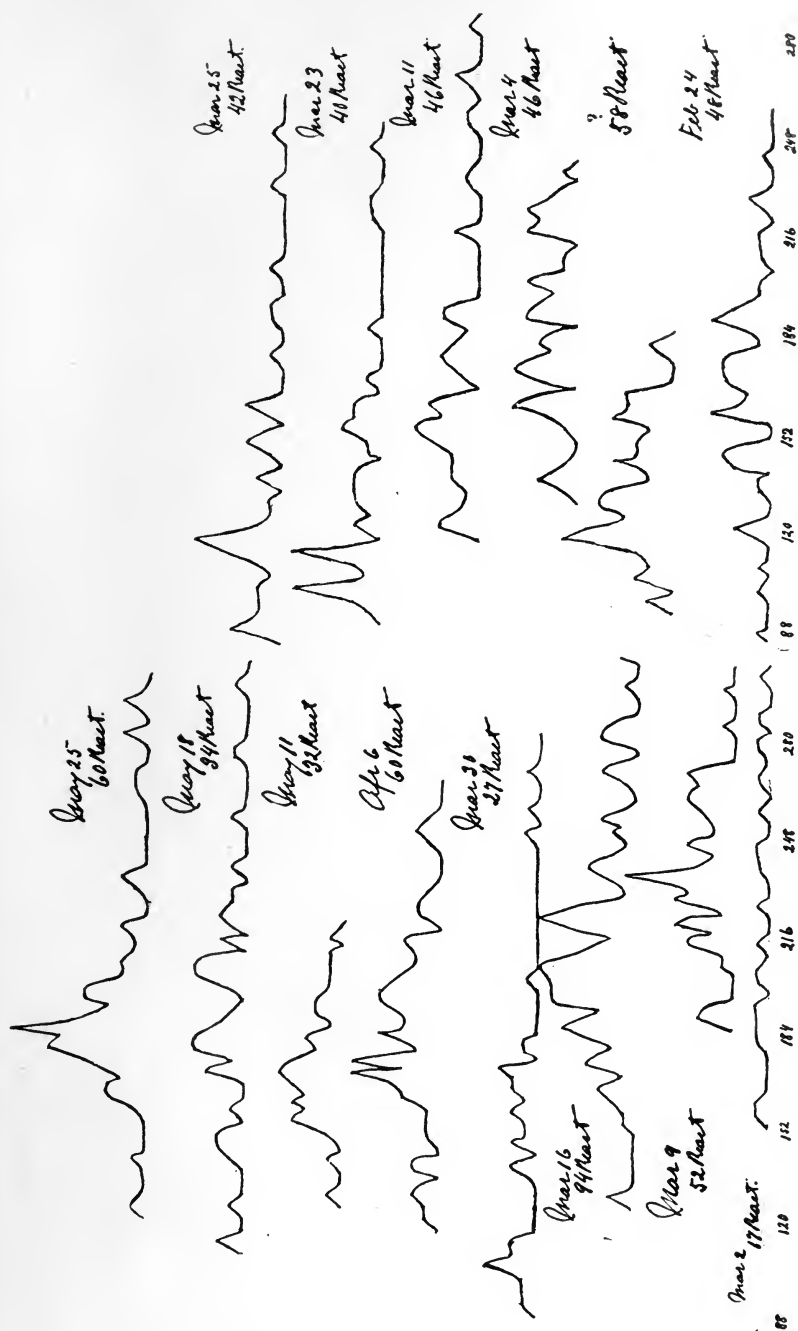 May 25
60 React.
May 18
94 React
May 11
32 React
Apr 6
60 React
Mar 30
27 React
Mar 16
94 React
Mar 9
52 React
Mar 2
17 React.
88 120 152 184 216 248 280
Mar 25
42 React.
Mar 23
40 React
Mar 11
46 React
Mar 4
46 React
?
58 React
Feb 24
48 React
88 120 152 184 216 248 280